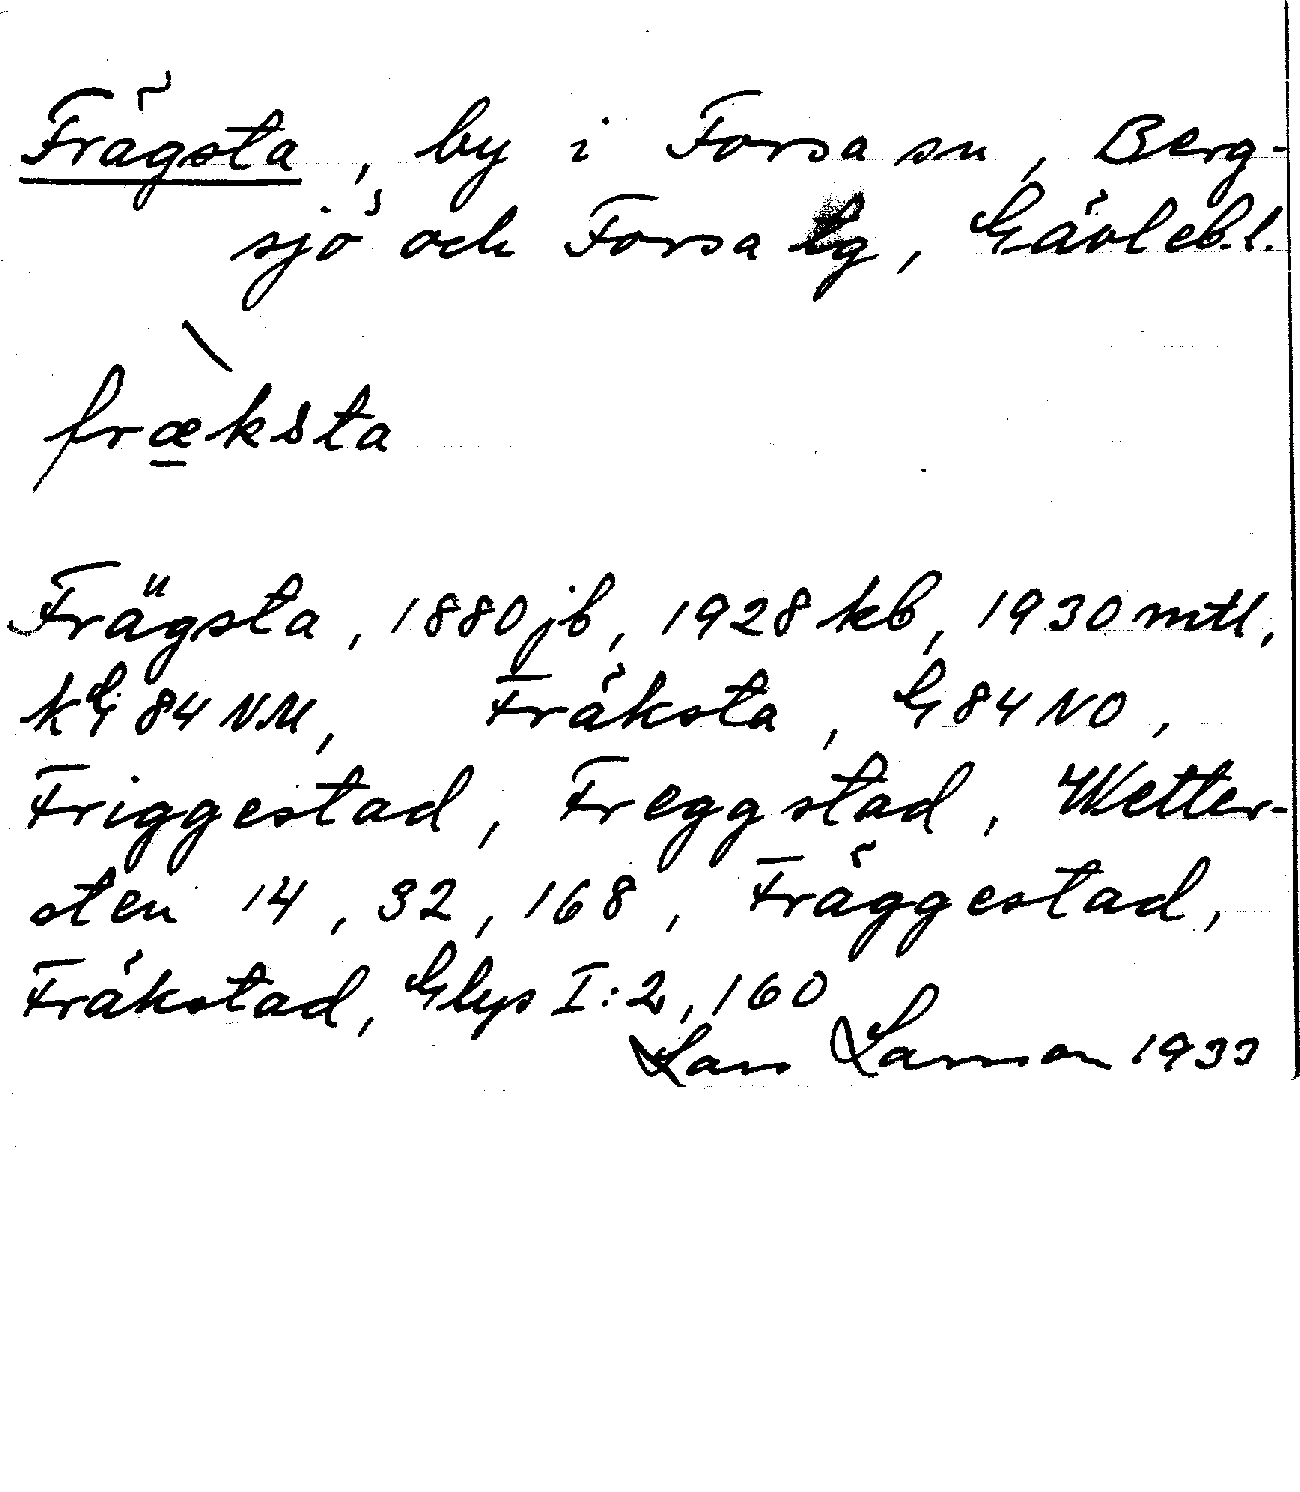 Frägsta, by i Forsa sn, Berg-
sjö och Forsa lg, Gävleb.l.
fræ̱̀ksta
Frägsta, 1880 jb, 1928 kb, 1930 mtl,
kG 84 NM, Fräksta, G 84 NO,
Friggestad, Freggstad, Wetter-
sten 14, 32, 168, Fräggestad,
Fräkstad, Glys I:2, 160
Lars Larsson 1933